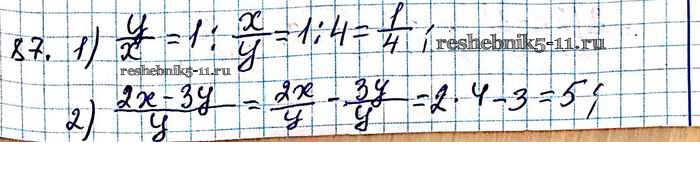 87. 1) y/x = 1 : x/y = 1 : 4 = 1/4 ; reshebnik5-11.ru
reshebnik5-11.ru
2) (2x - 3y)/y = 2x/y - 3y/y = 2 · 4 - 3 = 5 ;